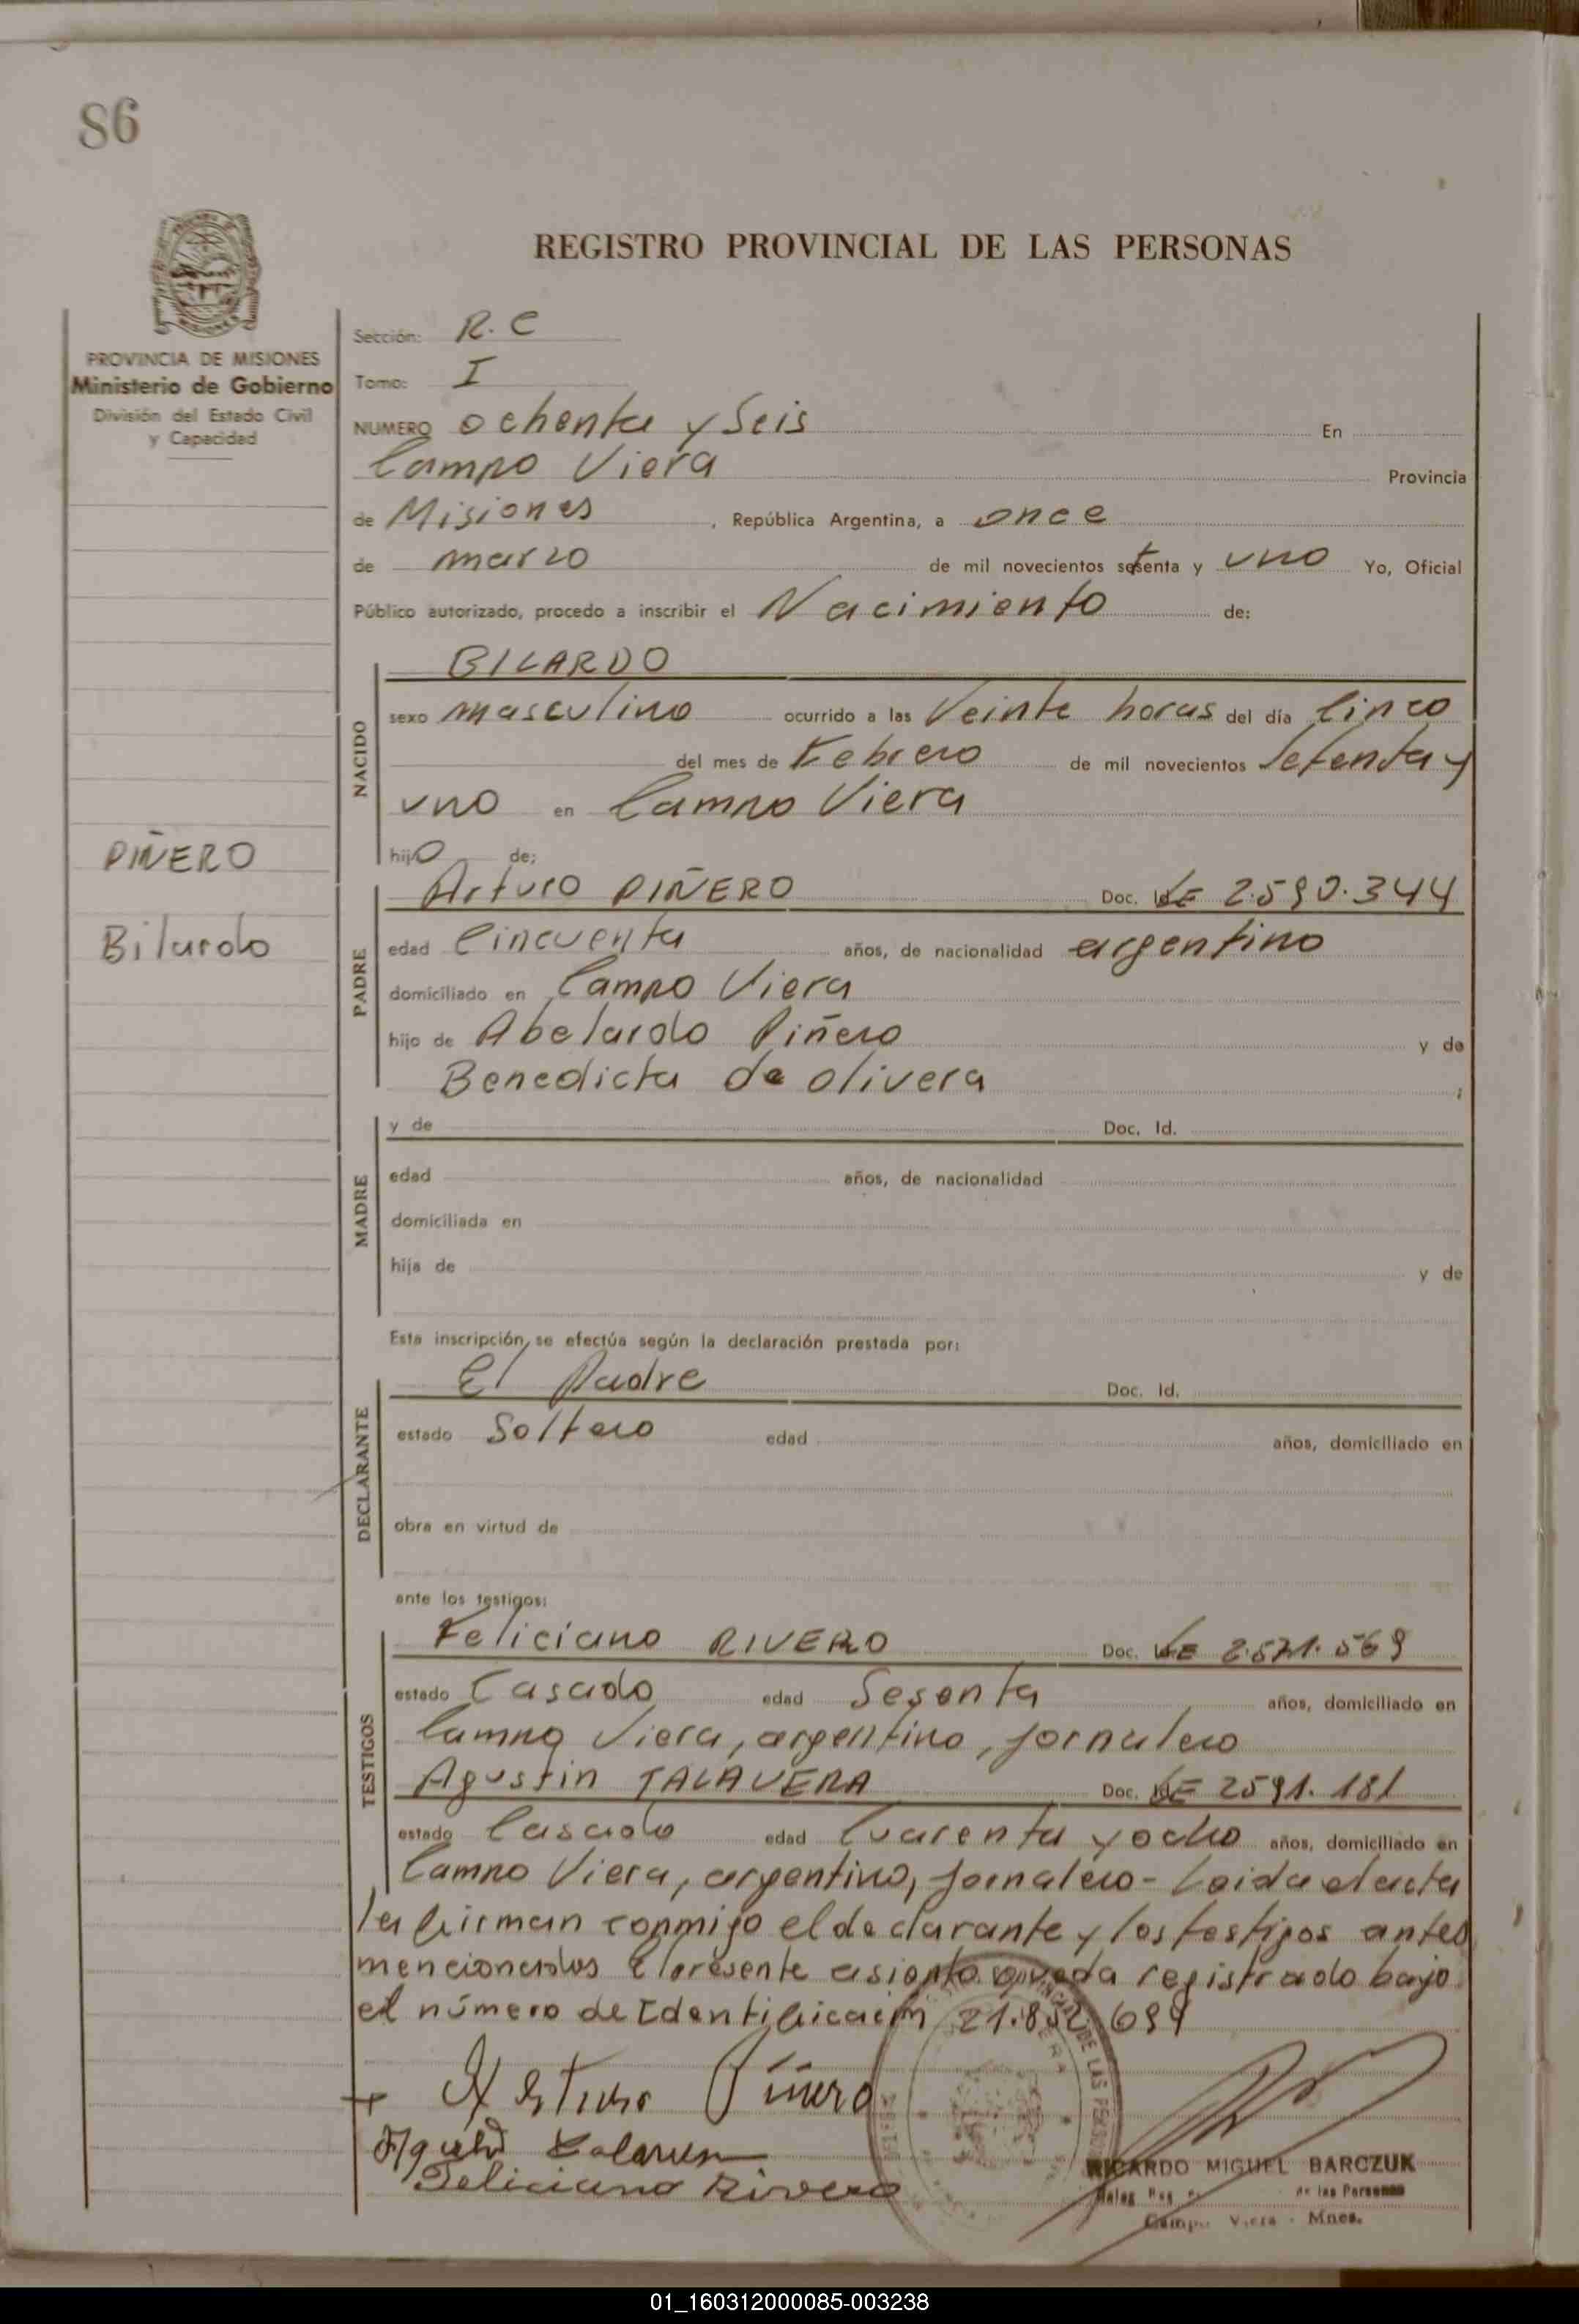 86
REGISTRO PROVINCIAL DE LAS PERSONAS
PROVINCIA DE MISIONES
Ministerio de Gobierno
División del Estado Civil
y Capacidad
Sección: R. C
Tomo: I
NUMERO ochenta y Seis En
Campo Viera Provincia
de Misiones, República Argentina, a once
de marzo de mil novecientos setenta y uno Yo, Oficial
Público autorizado, procedo a inscribir el Nacimiento de:
BILARDO
NACIDO
sexo masculino ocurrido a las Veinte horas del día Cinco
del mes de Febrero de mil novecientos Setenta y
uno en Campo Viera
hijo de:
PIÑERO
Bilardo
PADRE
Arturo PIÑERO Doc. LE 2.590.344
edad Cincuenta años, de nacionalidad argentino
domiciliado en Campo Viera
hijo de Abelardo Piñero y de
Benedicta de olivera ;
MADRE
y de Doc. Id.
edad años, de nacionalidad
domiciliada en
hija de y de
Esta inscripción, se efectúa según la declaración prestada por:
DECLARANTE
El Padre Doc. Id.
estado Soltero edad años, domiciliado en
obra en virtud de
ante los testigos:
TESTIGOS
Feliciano RIVERO Doc. LE 2.571.569
estado Casado edad Sesenta años, domiciliado en
Campo Viera, argentino, jornalero
Agustin TALAVERA Doc. LE 2591.181
estado Casado edad Cuarenta y ocho años, domiciliado en
Campo Viera, argentino, jornalero - Leida el acta
la firman conmigo el declarante y los testigos antes
mencionados El presente asiento queda registrado bajo
el número de Identificación 21.852.694
Arturo Piñero
Feliciano Rivero
RICARDO MIGUEL BARCZUK
de las Personas
Campo Viera - Mnes.
01_160312000085-003238